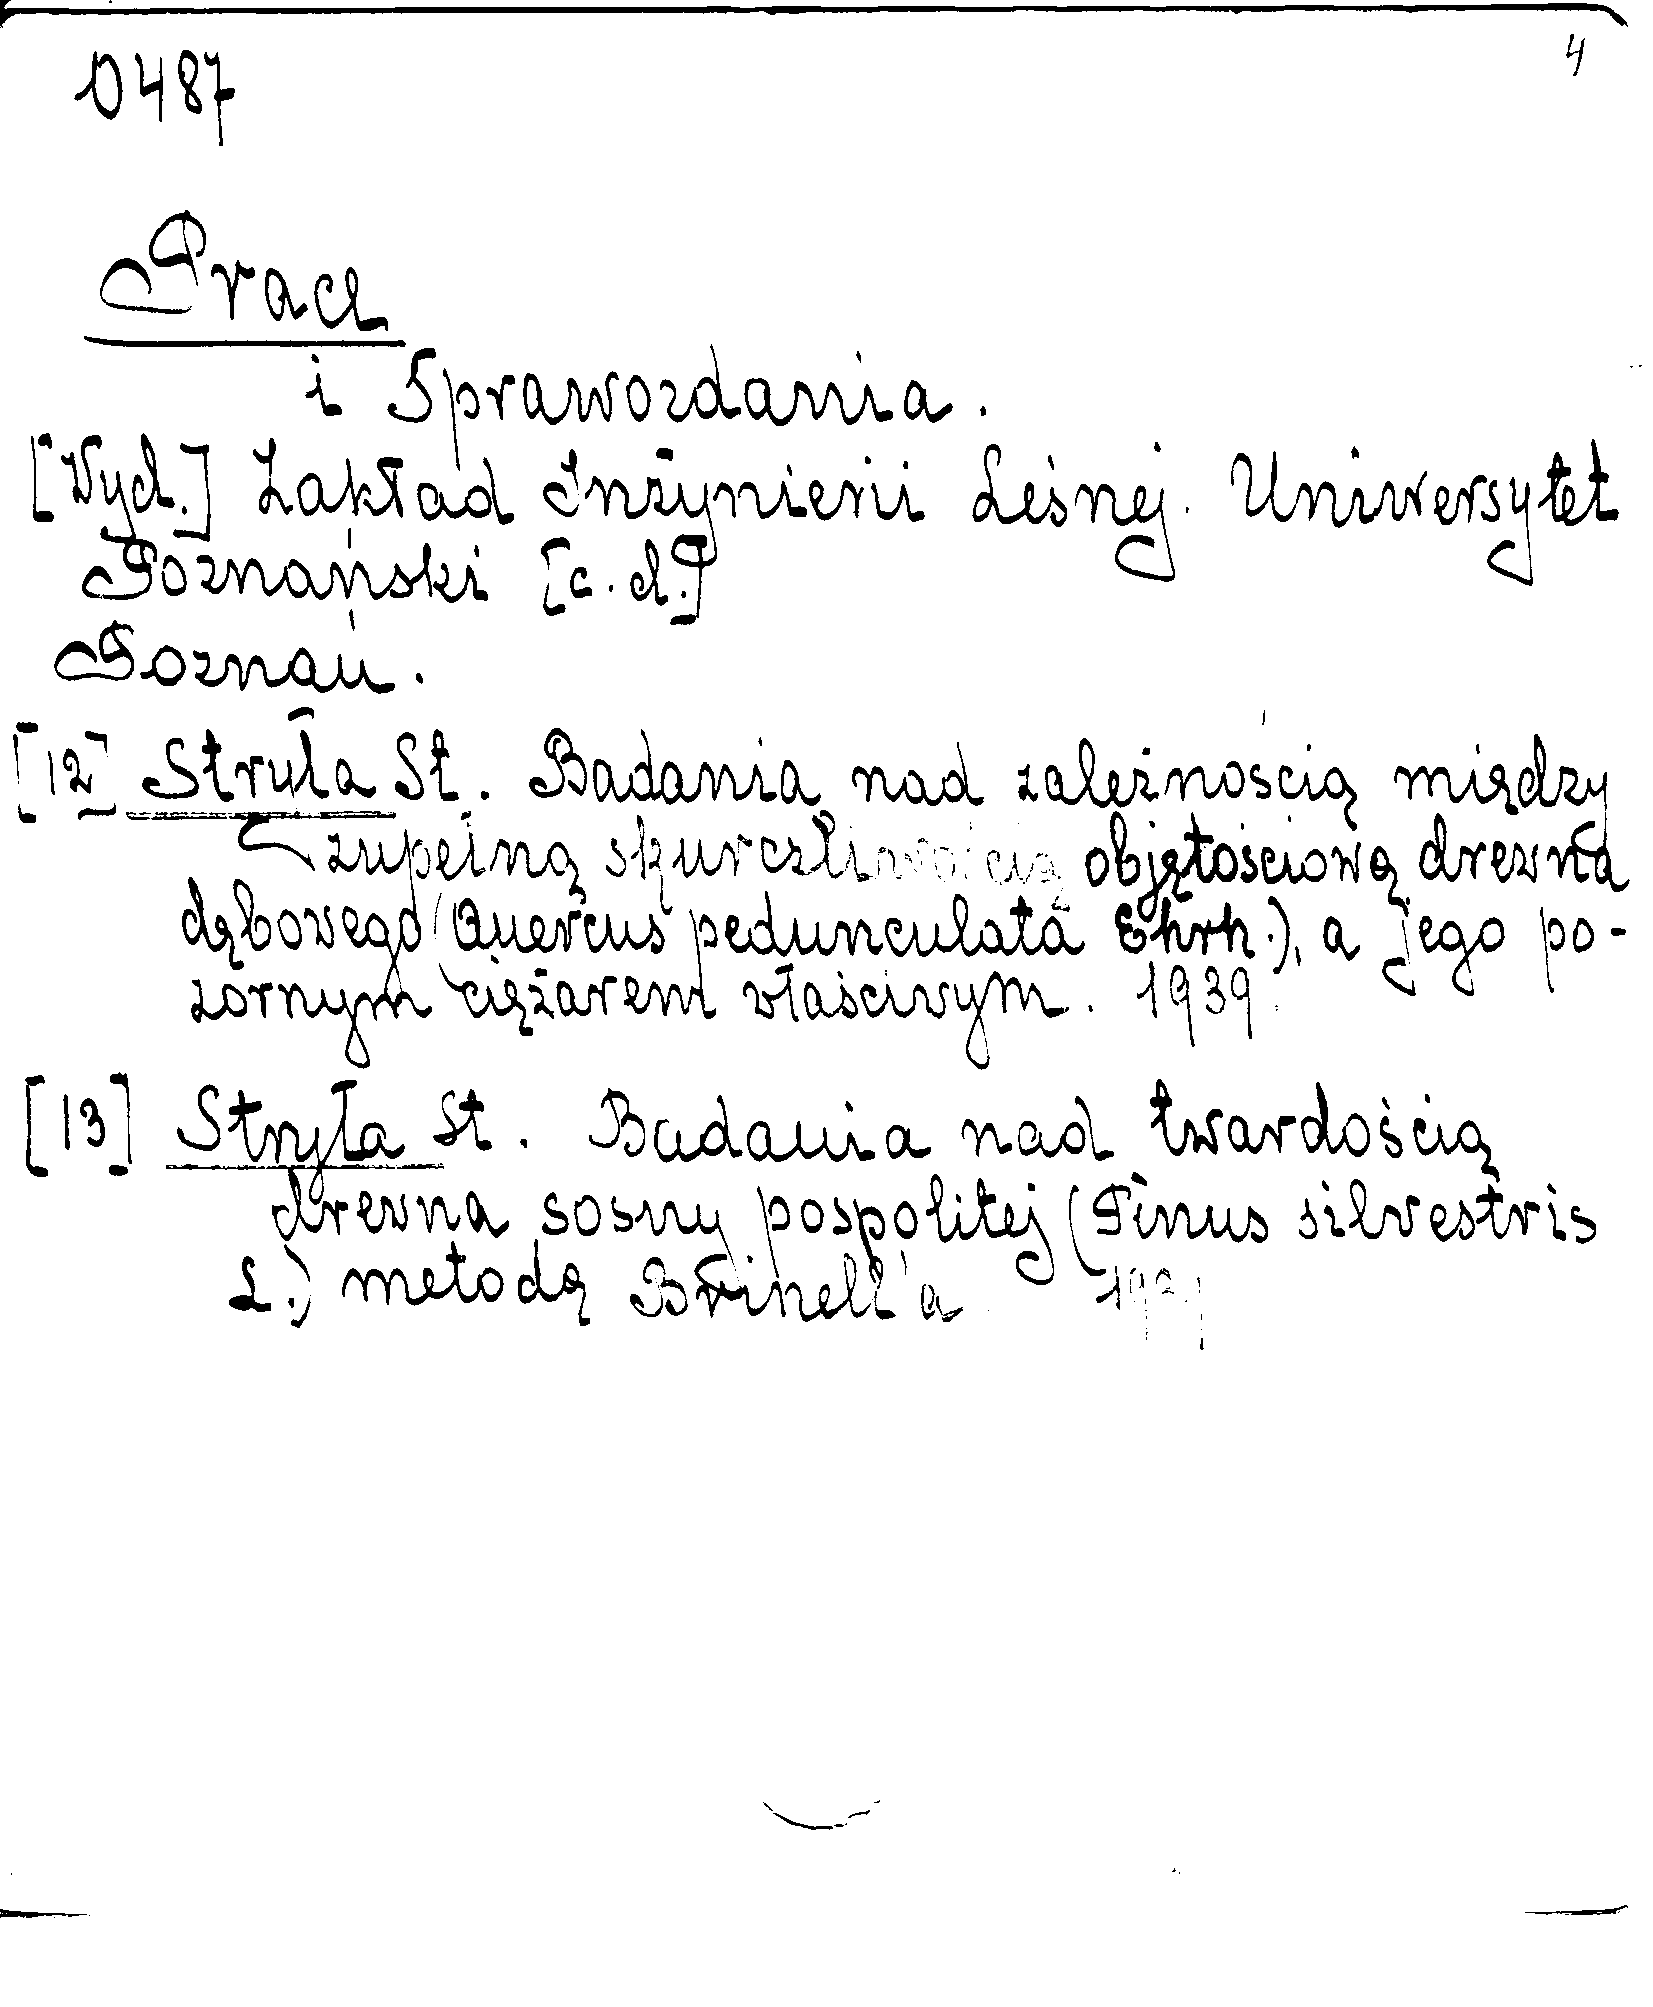 0487
4
Prace
i Sprawozdania.
[Wyd.] Zakład Inżynierii Leśnej. Uniwersytet
Poznański [c.d.]
Poznań.
[12] Stryła St. Badania nad zależnością między
zupełną skurczliwością objętościową drewna
dębowego (Quercus pedunculata Ehrh.), a jego po-
zornym ciężarem właściwym. 1939.
[13] Stryła St. Badania nad twardością
drewna sosny pospolitej (Pinus silvestris
L.) metodą Brinell'a